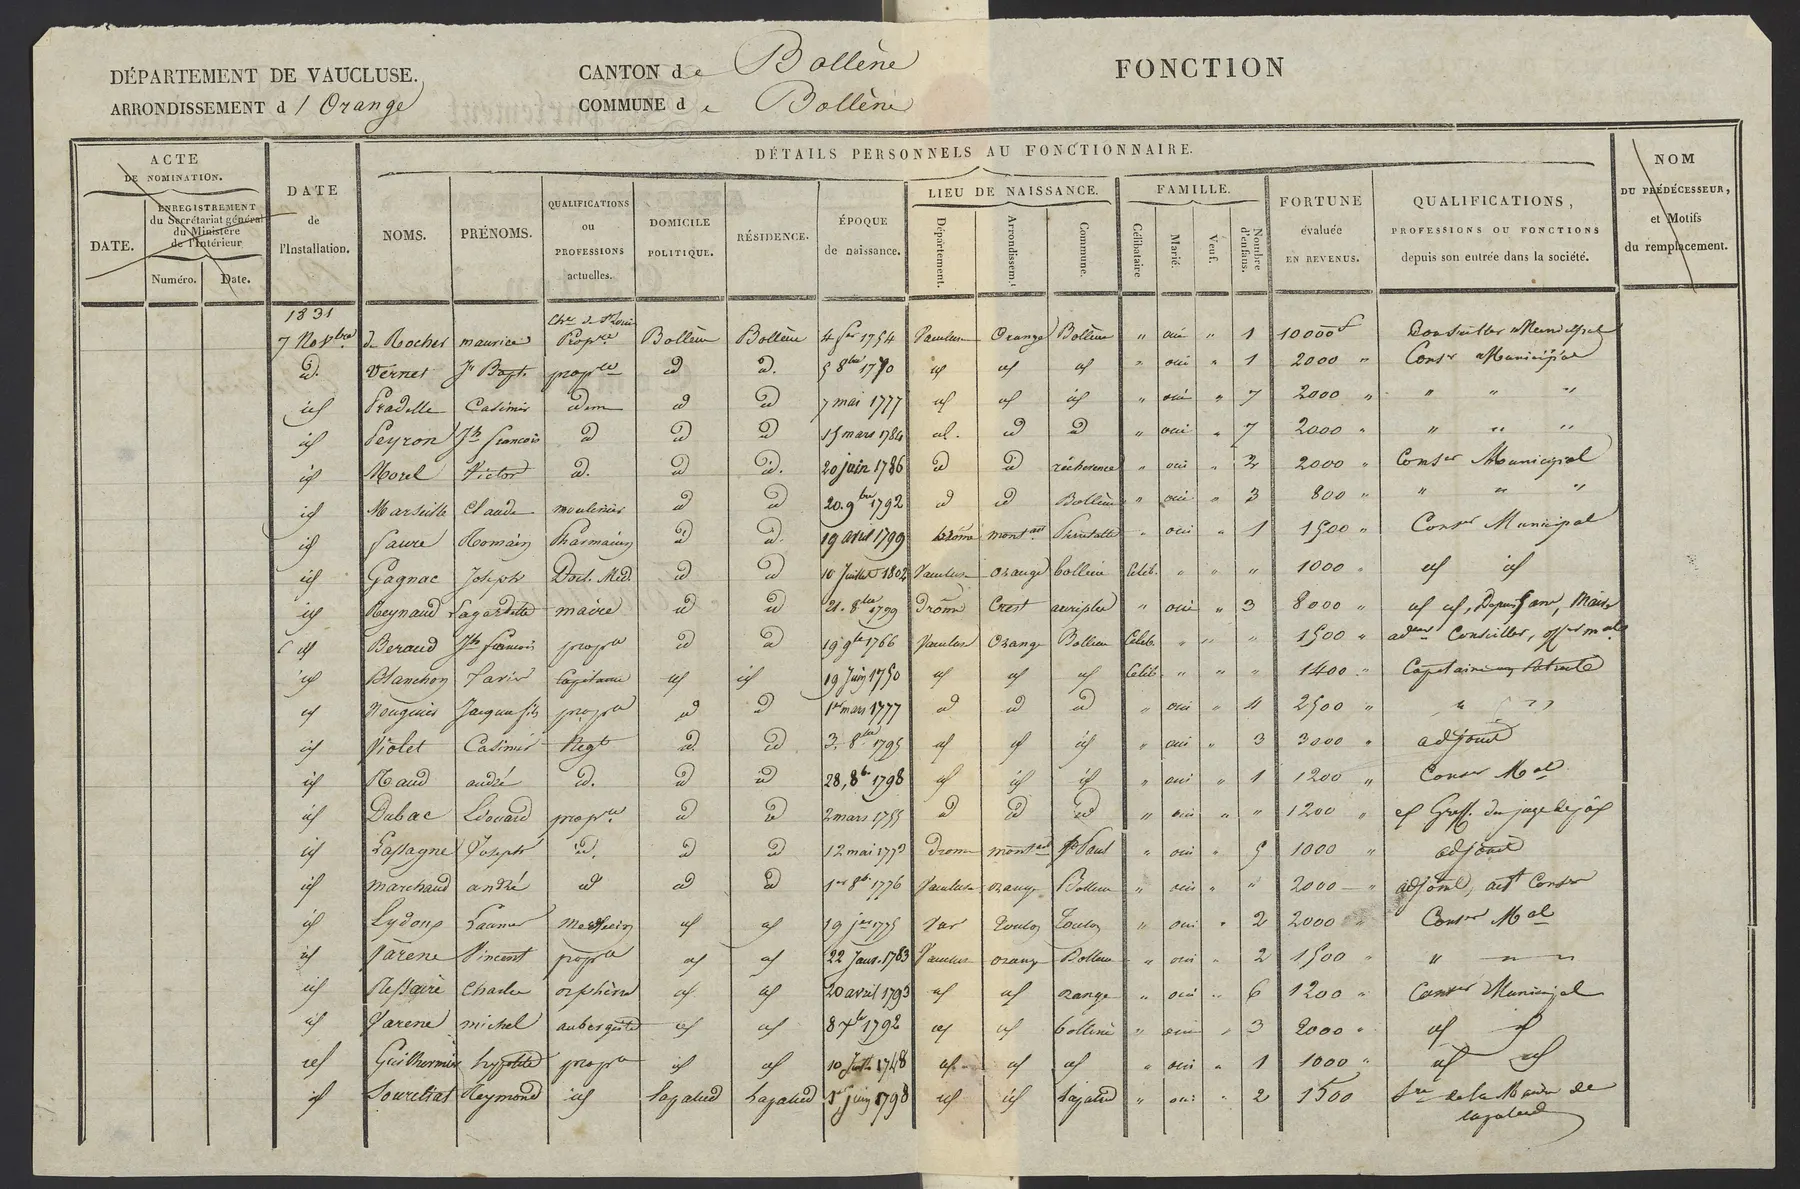 DÉPARTEMENT DE VAUCLUSE. CANTON de Bollène FONCTION
ARRONDISSEMENT d'Orange COMMUNE de Bollène
DÉTAILS PERSONNELS AU FONCTIONNAIRE.
ACTE DE NOMINATION.
DATE.
ENREGISTREMENT du Secrétariat général du Ministère de l'Intérieur
Numéro. Date.
DATE de l'Installation.
NOMS.
PRÉNOMS.
QUALIFICATIONS ou PROFESSIONS actuelles.
DOMICILE POLITIQUE.
RÉSIDENCE.
ÉPOQUE de naissance.
LIEU DE NAISSANCE.
Département. Arrondissem.t Commune.
FAMILLE.
Célibataire Marié. Veuf. Nombre d'enfans.
FORTUNE évaluée EN REVENUS.
QUALIFICATIONS, PROFESSIONS OU FONCTIONS depuis son entrée dans la société.
NOM DU PRÉDÉCESSEUR, et Motifs du remplacement.
1831
7 Novbre de Rocher maurice Cher de St Louis Propre Bollène Bollène 4 1754 Vaucluse Orange Bollène " oui " 1 10000f Conseiller Municipal
id. Vernet Jn Bapt. propre id id. 5 8bre 1770 id id id " oui " 1 2000 " Conser Municipal
id Pradelle Casimir idem id id 7 mai 1777 id id id " oui " 7 2000 " " " "
id Peyron Jh françois id id id 15 mars 1784 id. id id " oui " 7 2000 " " " "
id Morel Victor id. id id. 20 juin 1786 id id " oui " 2 2000 " Conser Municipal
id Marseille Claude moulinier id id 20. 9bre 1792 id id Bollène " oui " 3 800 " " " "
id faure Romain Pharmacien id id. 19 avril 1799 Drôme " oui " 1 1500 " Conser Municipal
id Gagnac Joseph Doct. Méd. id id 10 Juillet 1802 Vaucluse orange bollène Célib. " " " 1000 " id id
id Reynaud Lagardette maire id id 21. 8bre 1799 Drôme Crest " oui " 3 8000 " id id, Depuis Maire
id Beraud Jh francois propre id id 19 9bre 1766 Vaucluse Orange Bollene Célib. " " " 1500 " Conseiller,
id Blanchon Xavier Capitaine id id 19 Juin 1750 id id id Célib. " " " 1400 " Capitaine en retraite
id Nougier Jacques fils propre id id 1er mars 1777 id id id " oui " 4 2500 " " "
id Violet Casimir Negt id. id 3. 8bre 1795 id id id " oui " 3 3000 " adjoint
id Raud andré id. id id 28, 8bre 1798 id id id " oui " 1 1200 " Conser Mal
id Dubac Edouard propre. id id 2 mars 1755 id id id " oui " " 1200 "
id Lassagne Joseph id. id id 12 mai 1773 Drome St Paul " oui " 5 1000 " adjoint
id marchaud andré id id id 1er 8bre 1776 Vaucluse orange Bollene " oui " " 2000 " adjoint, Conser
id Lydons medecin id id 19 1775 Var Toulon Toulon " oui " 2 2000 " Conser Mal
id Varene Vincent propre id id 22 Janv. 1763 Vaucluse orange Bollene " oui " 2 1500 " " " "
id Charles orphèvre id id 20 avril 1793 id id orange " oui " 6 1200 " Conser Municipal
id Varene michel aubergiste id id 8 1792 id id bollène " oui " 3 2000 " id id
id Guilhermier hyppolite propre id id 10 1748 id id id " oui " 1 1000 " id id
id Reymond id Lapalud Lapalud 1er juin 1798 id id Lapalud " oui " 2 1500 de la Mairie de lapalud